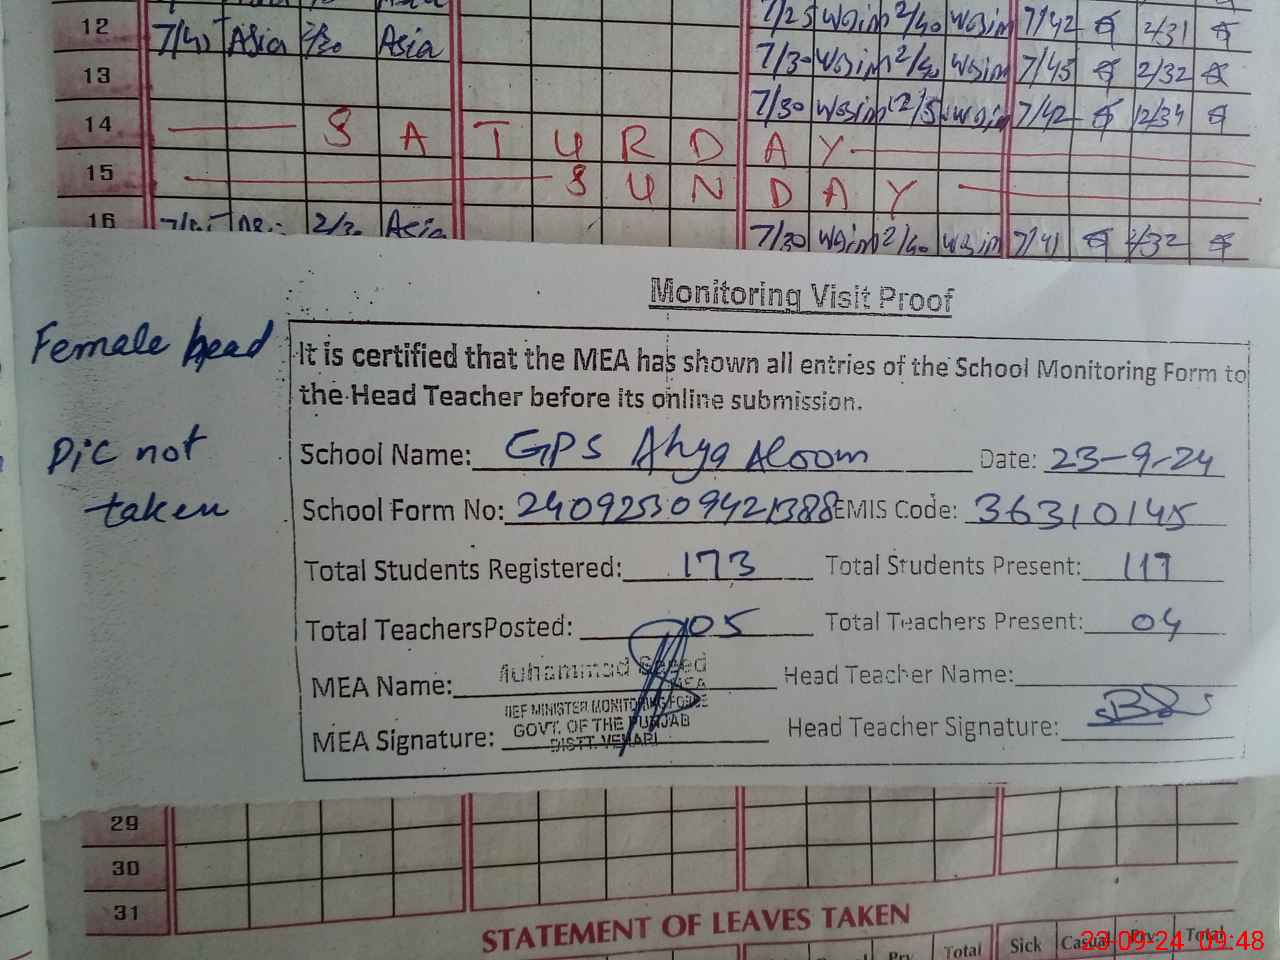 12 7/41 Asia 2/30 Asia 7/25 Wasim 2/40 Wasim 7/42 2/31
13 7/30 Wasim 2/40 Wasim 7/45 2/32
7/30 Wasim 12/5 Wasim 7/42 12/34
14 SATURDAY
15 SUNDAY
16 2/30 Asia 7/30 Wasim 2/40 Wasim 7/41 2/32
Monitoring Visit Proof
Female head
It is certified that the MEA has shown all entries of the School Monitoring Form to
the Head Teacher before its online submission.
Pic not
taken
School Name: GPS Ahya Aloom Date: 23-9-24
School Form No: EMIS Code: 36310145
Total Students Registered: 173 Total Students Present: 117
Total TeachersPosted: 05 Total Teachers Present: 04
MEA Name: Muhammad Saeed Head Teacher Name:
MEA
IEF MINISTER MONITORING FORCE
GOVT. OF THE PUNJAB
MEA Signature: DISTT. VEHARI Head Teacher Signature:
29
30
31
STATEMENT OF LEAVES TAKEN
Prv Total Sick Casual Prv. Total
23-09-24 09:48